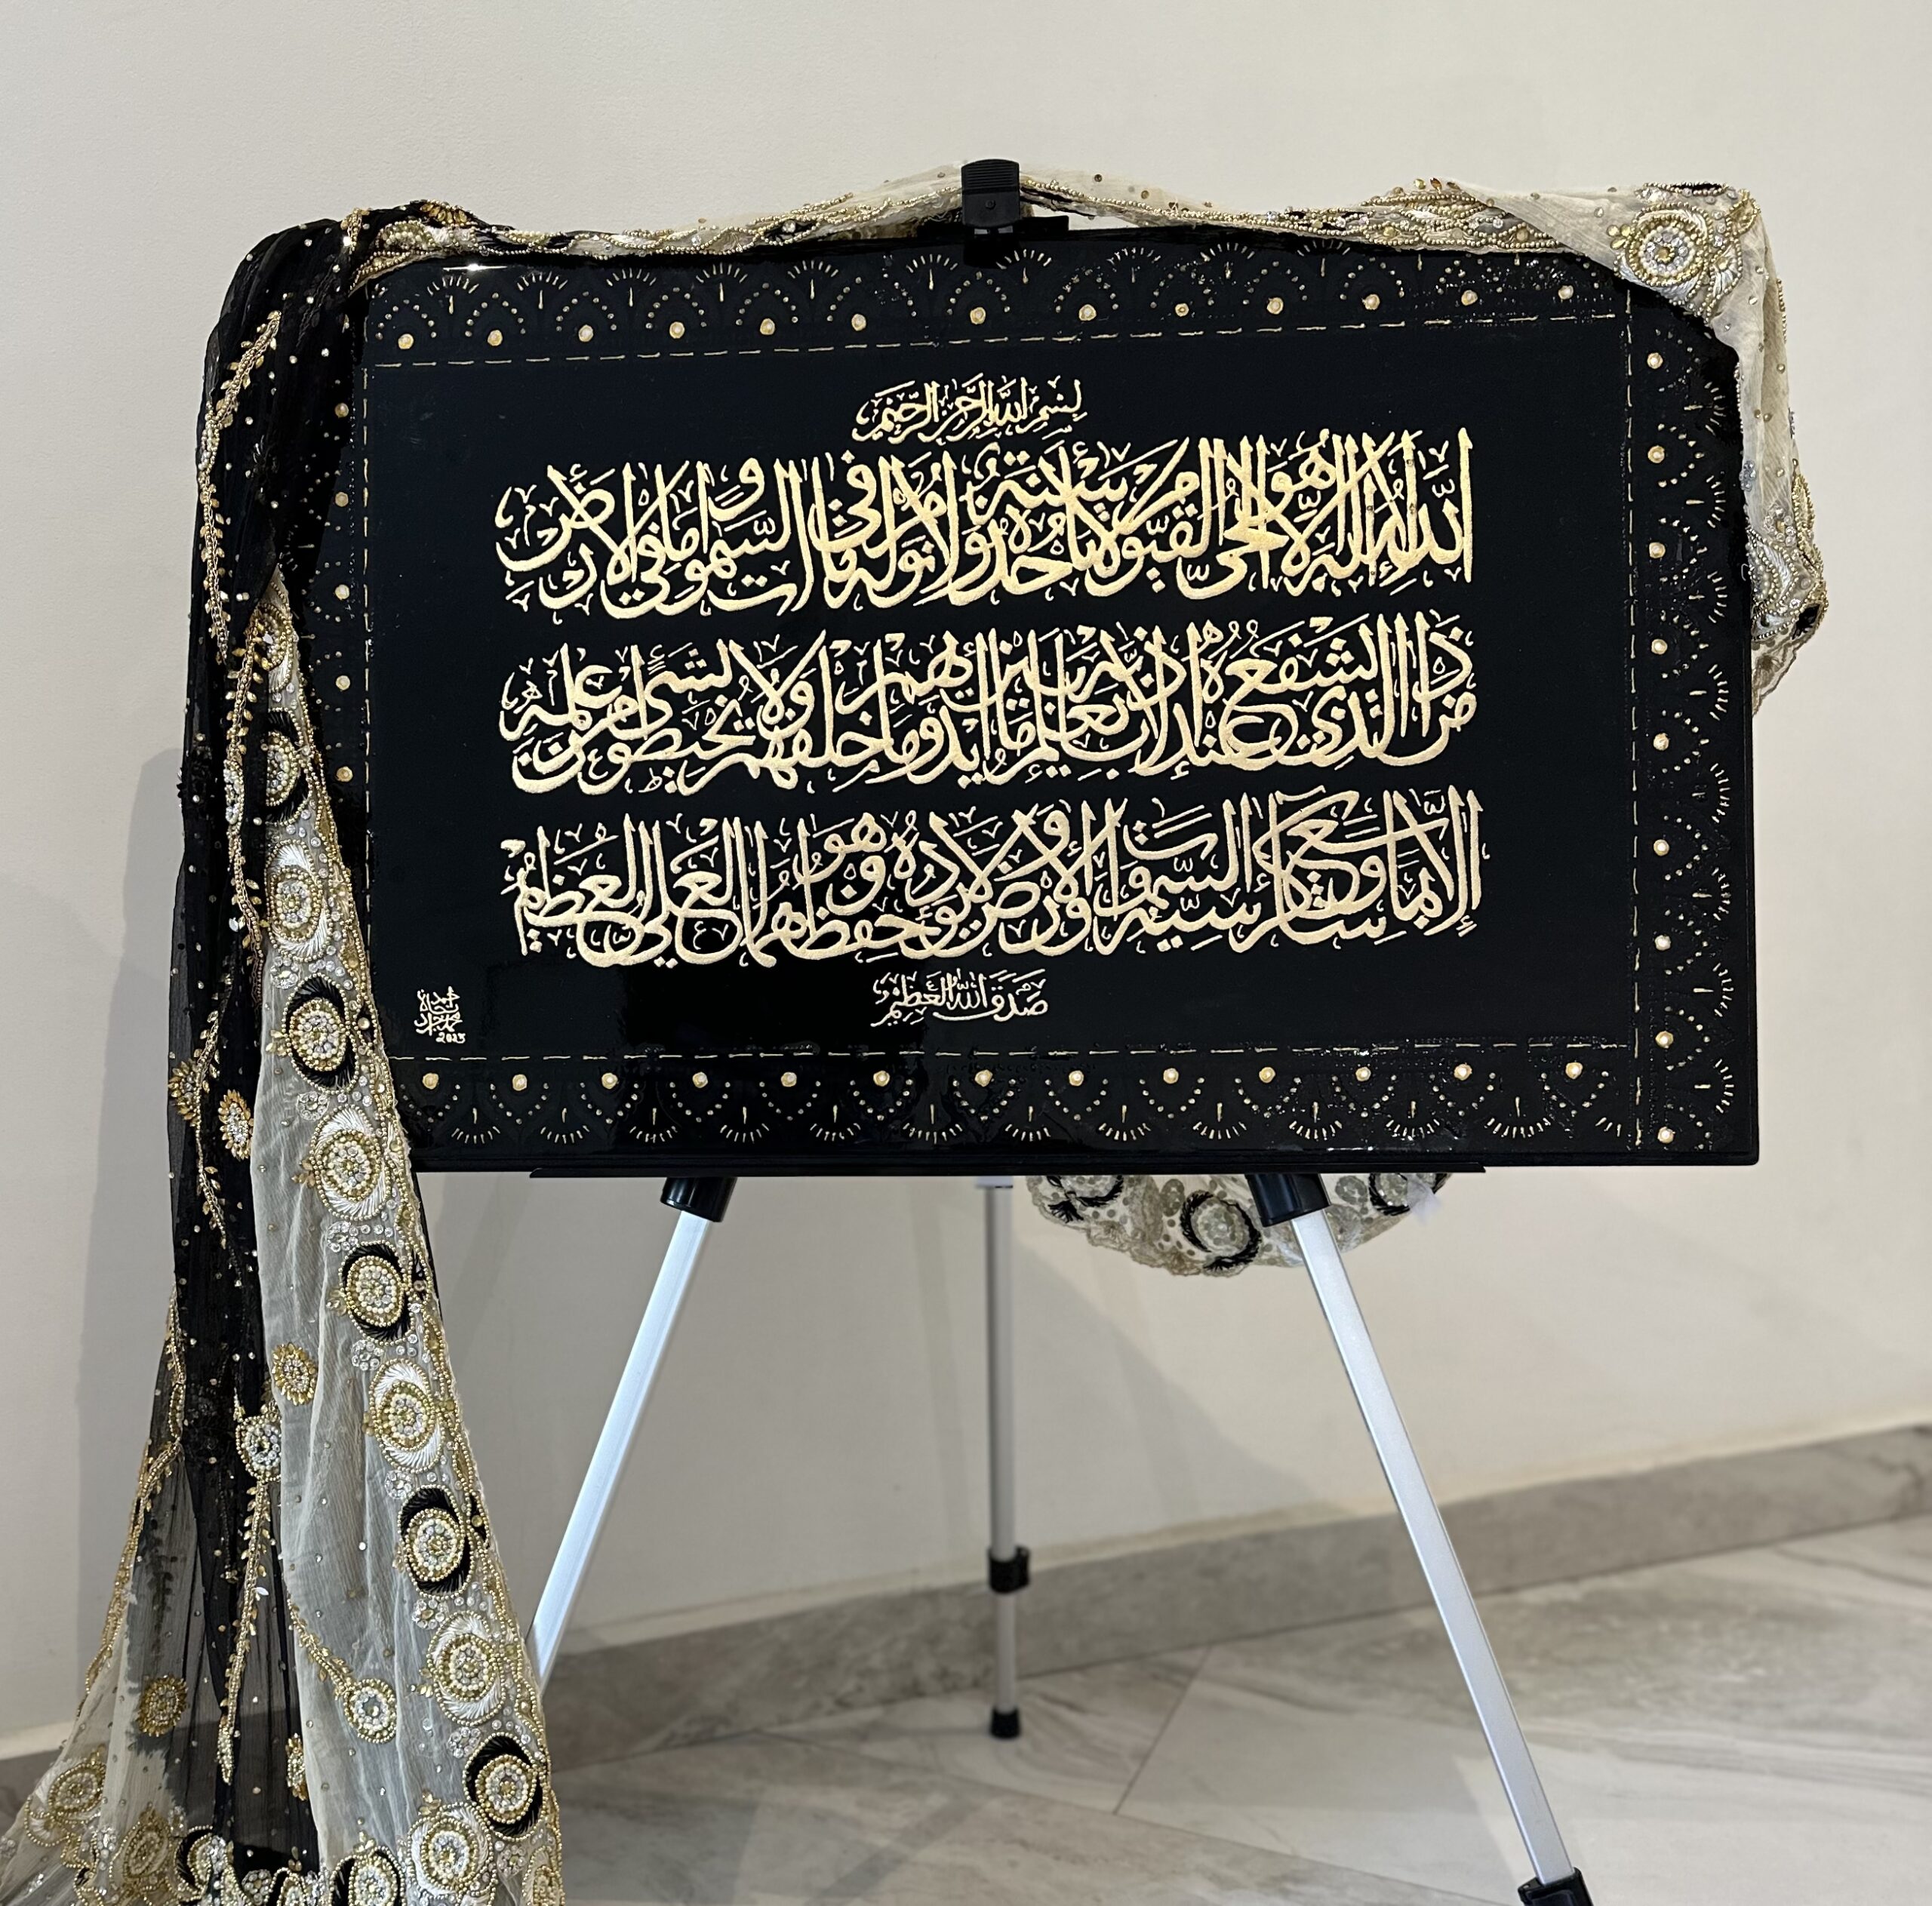 بسم الله الرحمن الرحيم
الله لا إله إلا هو الحي القيوم لا تأخذه سنة ولا نوم له ما في السموات وما في الأرض
من ذا الذي يشفع عنده إلا بإذنه يعلم ما بين أيديهم وما خلفهم ولا يحيطون بشيء من علمه
إلا بما شاء وسع كرسيه السموات والأرض ولا يؤده حفظهما وهو العلي العظيم
صدق الله العظيم
2023